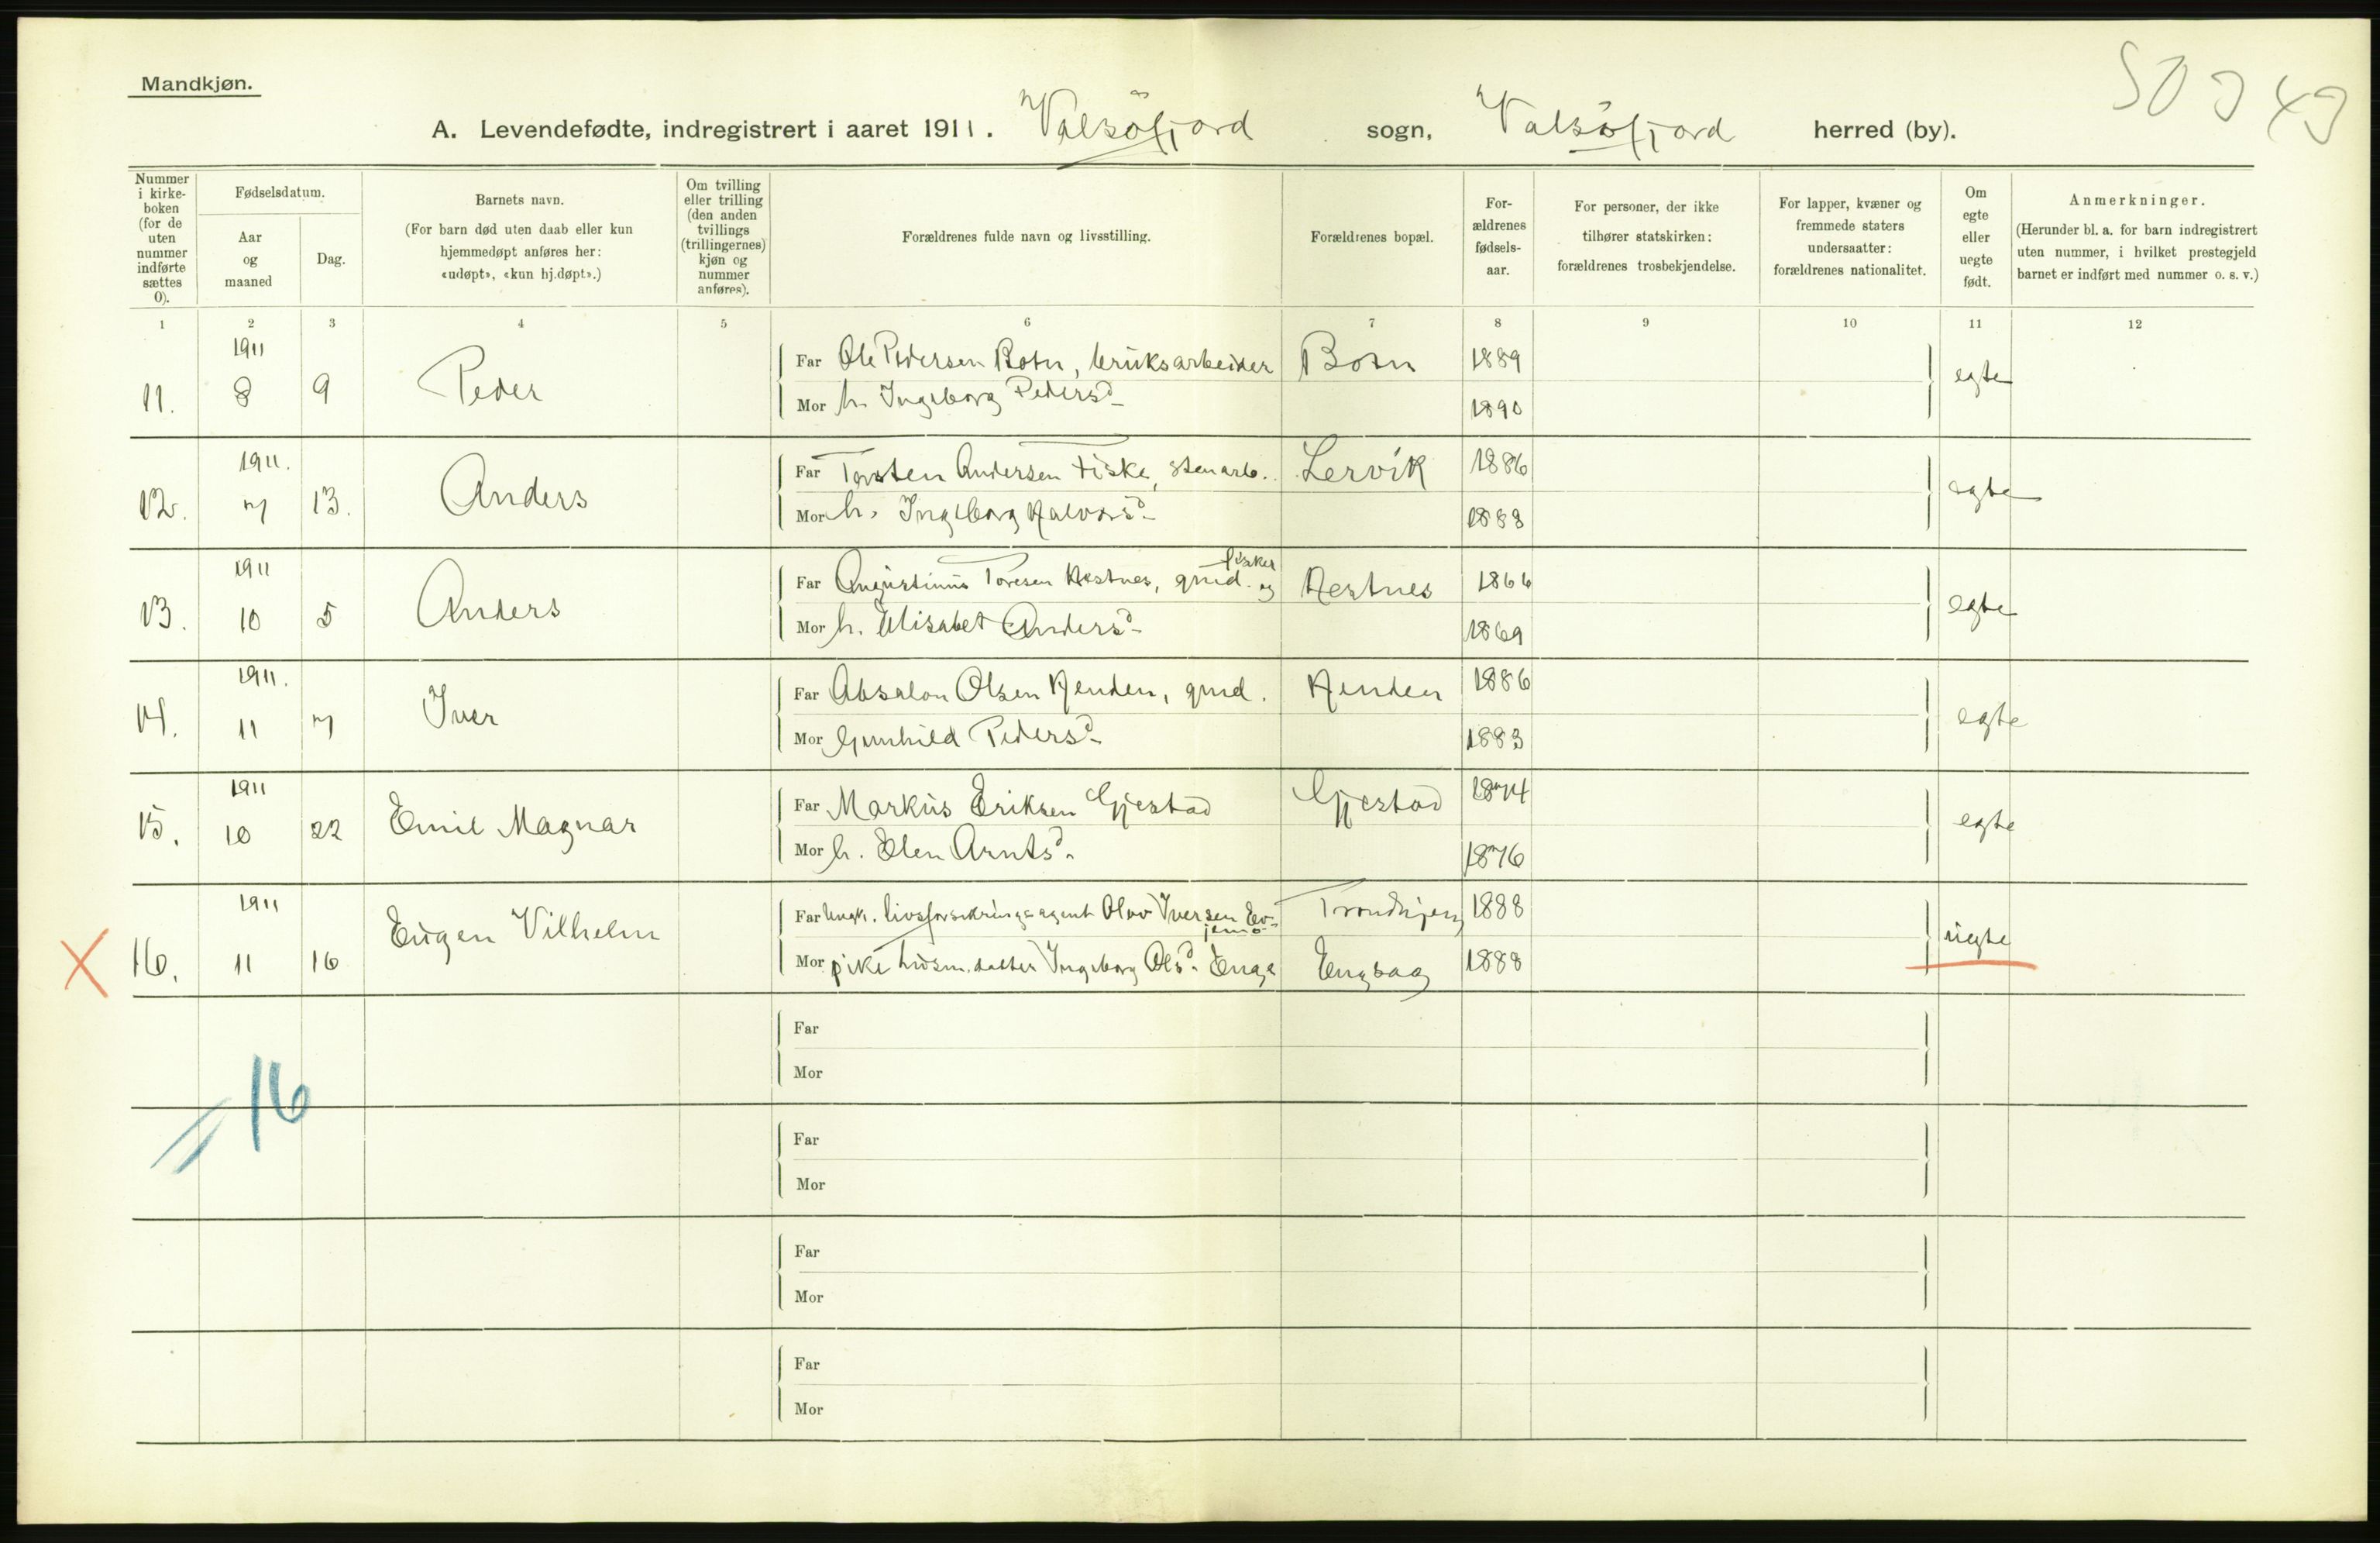 Mandkjøn.
A. Levendefødte, indregistrert i aaret 1911. Valsøfjord sogn, Valsøfjord herred (by).
Nummer i kirke-boken (for de uten nummer indførte sættes 0).
Fødselsdatum.
Aar og maaned
Dag.
Barnets navn.
(For barn død uten daab eller kun
hjemmedøpt anføres her:
«udøpt», «kun hj.døpt».)
Om tvilling
eller trilling
(den anden
tvillings
(trillingernes)
kjøn og
nummer
anføres).
Forældrenes fulde navn og livsstilling.
Forældrenes bopæl.
For-
ældrenes
fødsels-
aar.
For personer, der ikke
tilhører statskirken:
forældrenes trosbekjendelse.
For lapper, kvæner og
fremmede staters
undersaatter:
forældrenes nationalitet.
Om
egte
eller
uegte
født.
Anmerkninger.
(Herunder bl. a. for barn indregistrert
uten nummer, i hvilket prestegjeld
barnet er indført med nummer o. s. v.)
1 2 3 4 5 6 7 8 9 10 11 12
11. 1911 8 9 Peder Far Ole Pedersen Botn, bruksarbeider Botn 1889 egte
Mor h. Ingeborg Pedersd. 1890
12. 1911. 7 13. Anders Far Torsten Andersen Fiske, stenarb. Lervik 1886 egte
Mor h. Ingeborg Halvorsd. 1888
13. 1911 10 5 Anders Far Augustinus Toresen Hestnes, gmd. og fisker Hestnes 1866 egte
Mor h. Elisabet Andersd. 1869
14. 1911. 11 7 Iver Far Absalon Olsen Henden, gmd. Henden 1886 egte
Mor Gunhild Pedersd. 1883
15. 1911 10 22 Emil Magnar Far Markus Eriksen Gjestad Gjestad 1874 egte
Mor h. Elen Arntsd. 1876
16. 1911 11 16 Eugen Vilhelm Far Ungk. livsforsikringsagent Olav Iversen Trondhjem 1888 uegte
Mor pike husm.datter Ingeborg Olsd. Enge Engsaag 1888
Far
Mor
= 16
Far
Mor
Far
Mor
Far
Mor